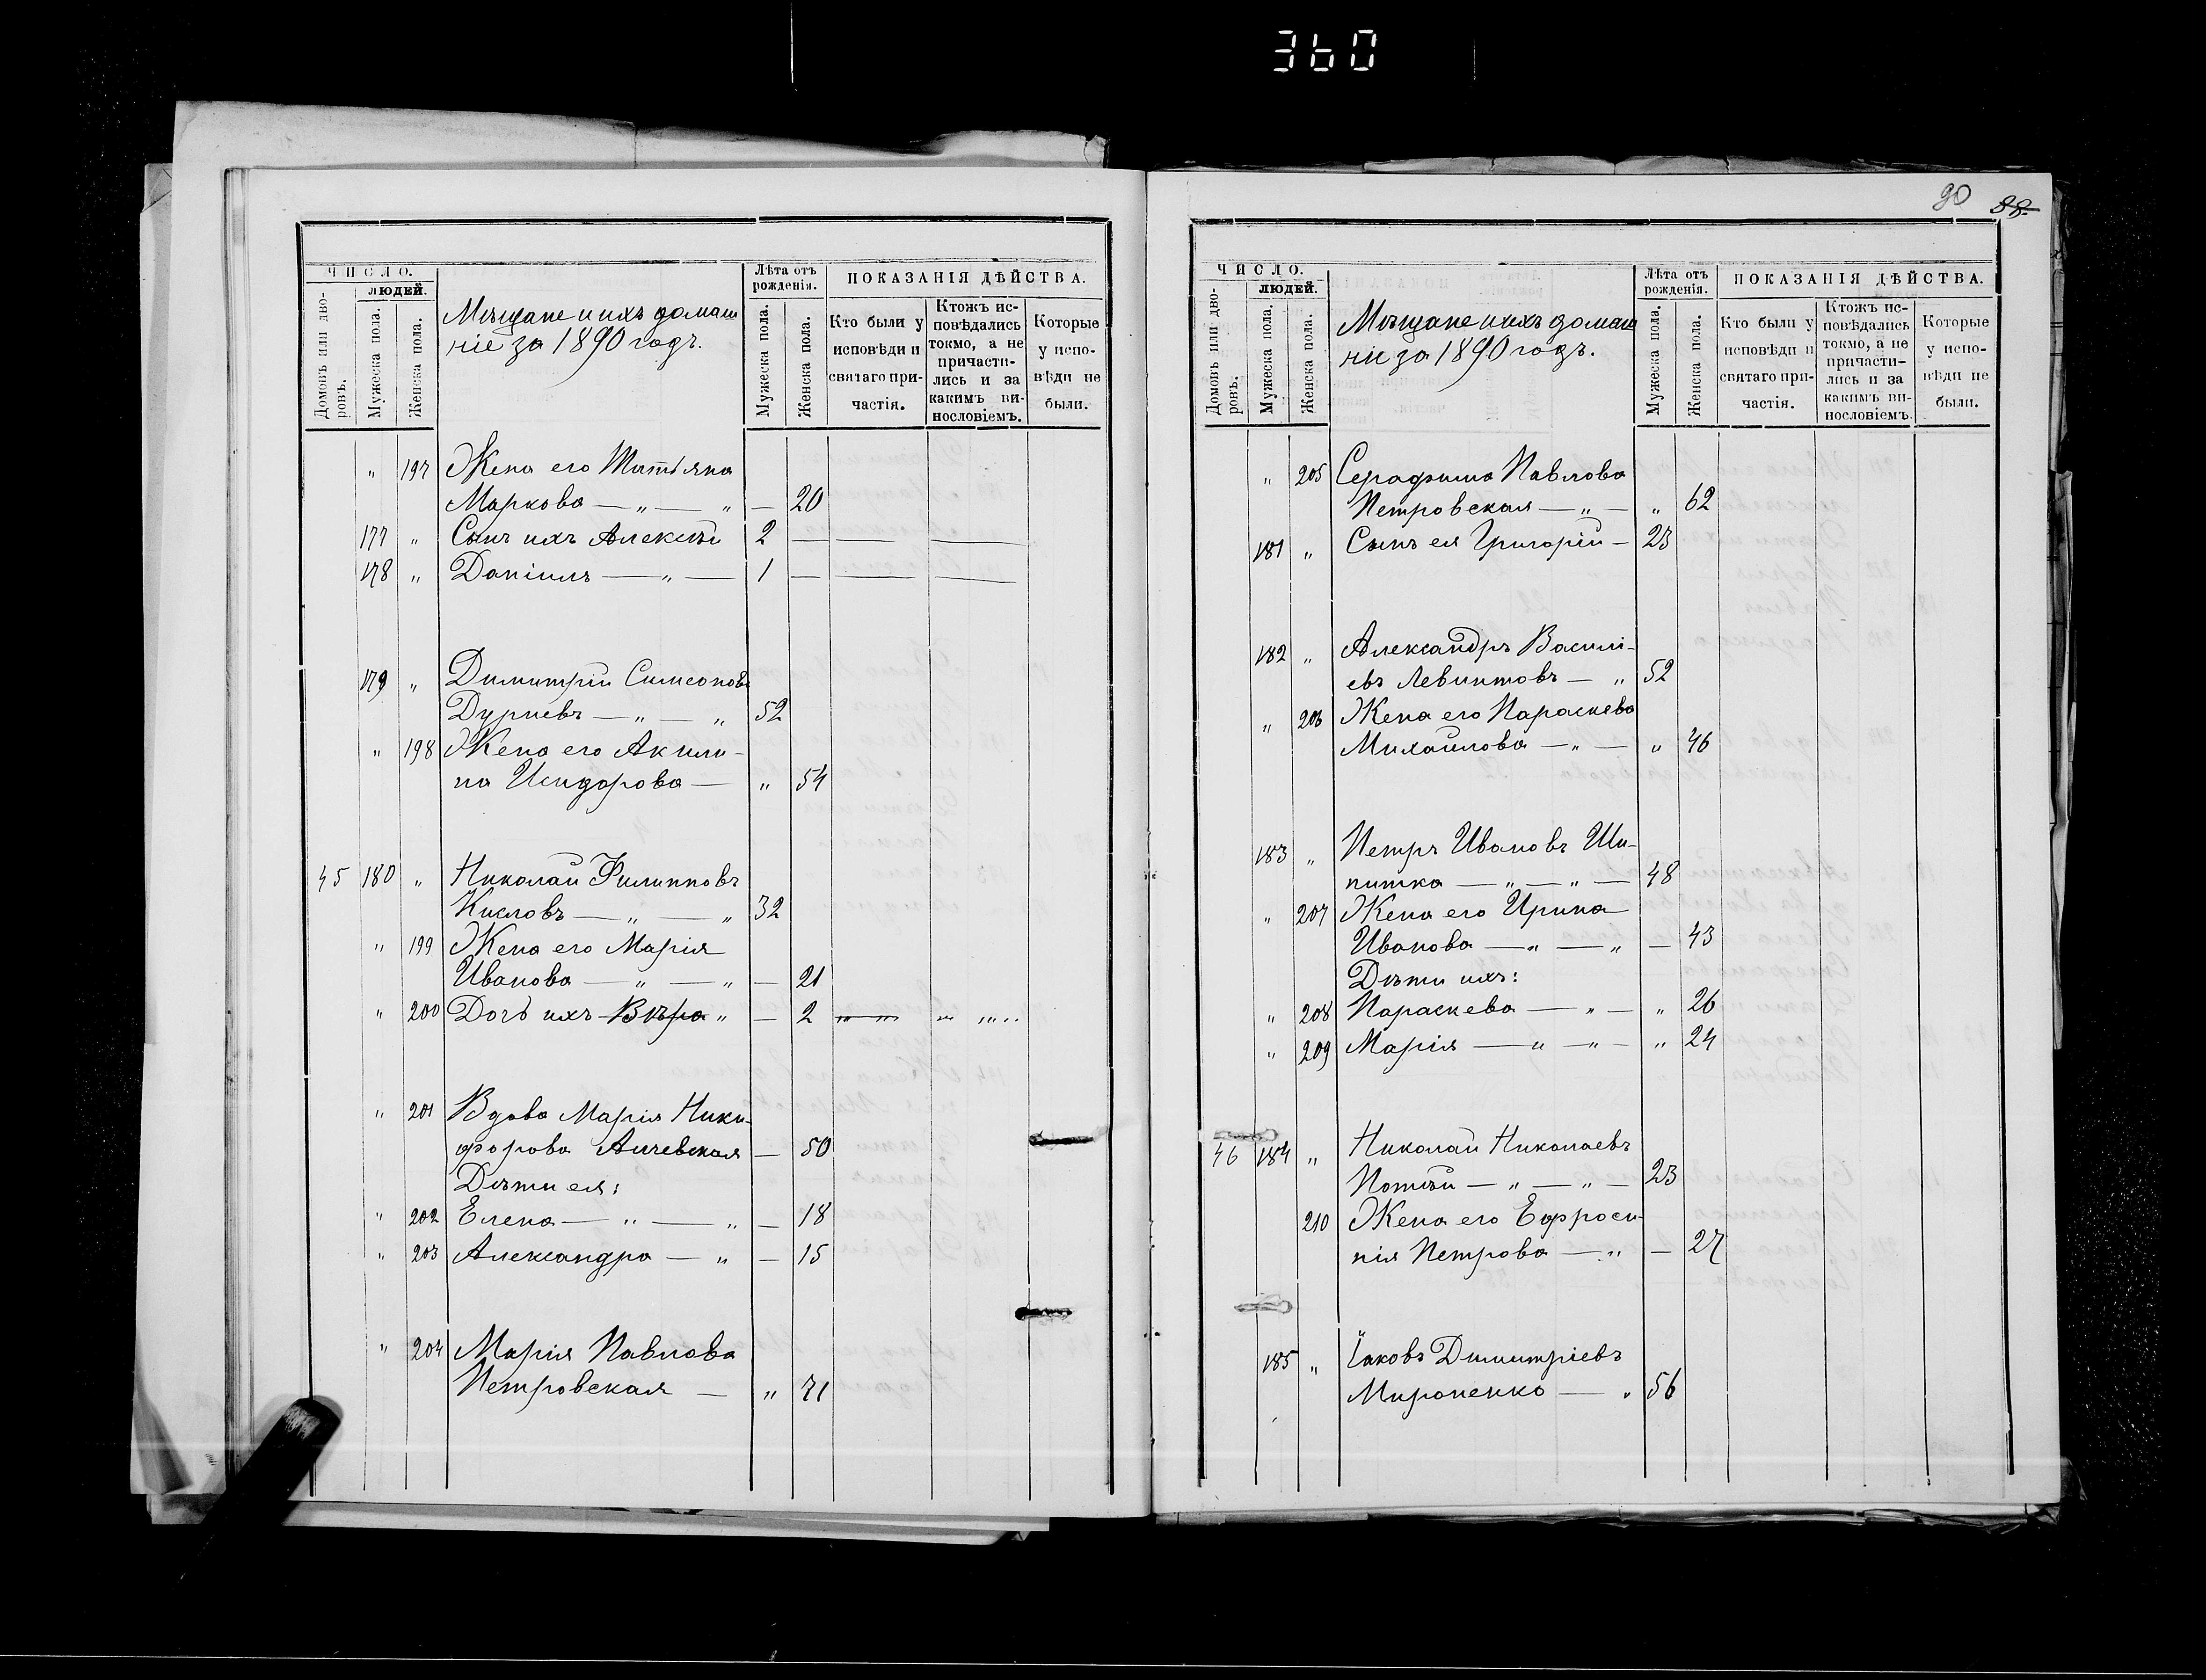 360
ЧИСЛО.
людей.
Домовъ или дво-
ровъ.
Мужеска пола.
Женска пола.
Мѣщане и ихъ домаш
ніе за 1890 годъ.
Лѣта отъ
рожденія.
Мужеска пола.
Женска пола.
ПОКАЗАНІЯ ДѢЙСТВА.
Кто были у
исповѣди и
святаго при-
частія.
Ктожъ ис-
повѣдались
токмо, а не
причасти-
лись и за
какимъ ви-
нословіемъ.
Которые
у испо-
вѣди не
были.
„ 197 Жена его Татьяна
Маркова — „ — „ — 20
177 „ Сынъ ихъ Алексѣй 2 — — —
178 „ Даніилъ — „ — 1 — — —
179 „ Димитрій Симеоновъ
Дурневъ — „ — „ 52
„ 198 Жена его Акили-
на Исидорова — „ 54
45 180 „ Николай Филипповъ
Кисловъ — „ — „ 32
„ 199 Жена его Марія
Иванова — „ — „ — 21
„ 200 Дочь ихъ Вѣра „ — 2
„ 201 Вдова Марія Ники-
форова Аичевская — 50
Дѣти ея:
„ 202 Елена — „ — „ — 18
„ 203 Александра — „ — 15
„ 204 Марія Павлова
Петровская — „ 71
90 88.
ЧИСЛО.
людей.
Домовъ или дво-
ровъ.
Мужеска пола.
Женска пола.
Мѣщане и ихъ домаш
ніе за 1890 годъ.
Лѣта отъ
рожденія.
Мужеска пола.
Женска пола.
ПОКАЗАНІЯ ДѢЙСТВА.
Кто были у
исповѣди и
святаго при-
частія.
Ктож ис-
повѣдались
токмо, а не
причасти-
лись и за
какимъ ви-
нословіемъ.
Которые
у испо-
вѣди не
были.
„ 205 Серафима Павлова
Петровская — „ — „ 62
181 „ Сынъ ея Григорій — 23
182 „ Александръ Василі-
евъ Левинтовъ — „ 52
„ 206 Жена его Параскева
Михайлова — „ — „ 46
183 „ Петръ Ивановъ Ши-
питка — „ — „ — 48
„ 207 Жена его Ирина
Иванова — „ — „ — 43
Дѣти ихъ:
„ 208 Параскева — „ — „ 26
„ 209 Марія — „ — „ — „ 24
46 184 „ Николай Николаевъ
Потѣй — „ — „ — 23
210 Жена его Ефроси-
нія Петрова — „ — 27
185 „ Іаковъ Димитріевъ
Мироненко — „ 56